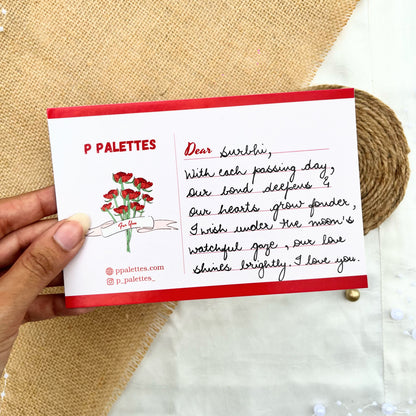 P PALETTES
For You
ppalettes.com
p_palettes_
Dear Surbhi,
With each passing day,
our bond deepens &
our hearts grow fonder,
I wish under the moon's
watchful gaze, our love
shines brightly. I love you.